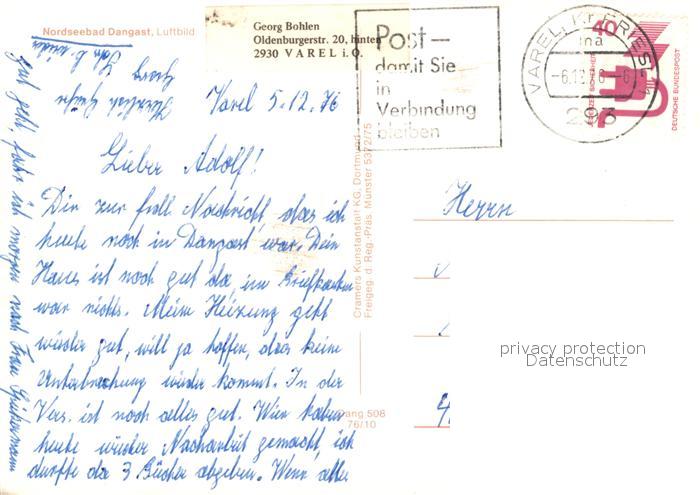 Nordseebad Dangast, Luftbild
Georg Bohlen
Oldenburgerstr. 20, hinten
2930 VAREL i. O.
Post —
damit Sie
in
Verbindung
bleiben
VAREL, Kr FRIESL
ma
–6.12.76–6
293
40
DEUTSCHE BUNDESPOST
Varel 5.12.76
Lieber Adolf!
Dir zur frdl Nachricht, das ich
heute noch in Dangast war. Dein
Haus ist noch gut da, im Briefkasten
war nichts. Meine Heizung geht
wieder gut, will ja hoffen, das keine
Unterbrechung wieder kommt. In der
Vers. ist noch alles gut. Wir haben
heute wieder Nacharbeit gemacht, ich
durfte da 3 Bücher abgeben. Wenn alles
gut geht, fahr ich morgen nach Frau
Georg
Cramers Kunstanstalt KG, Dortmund
Freigeg. d. Reg.-Präs. Münster 5372/75
Dang 508
76/10
Herrn
privacy protection
Datenschutz